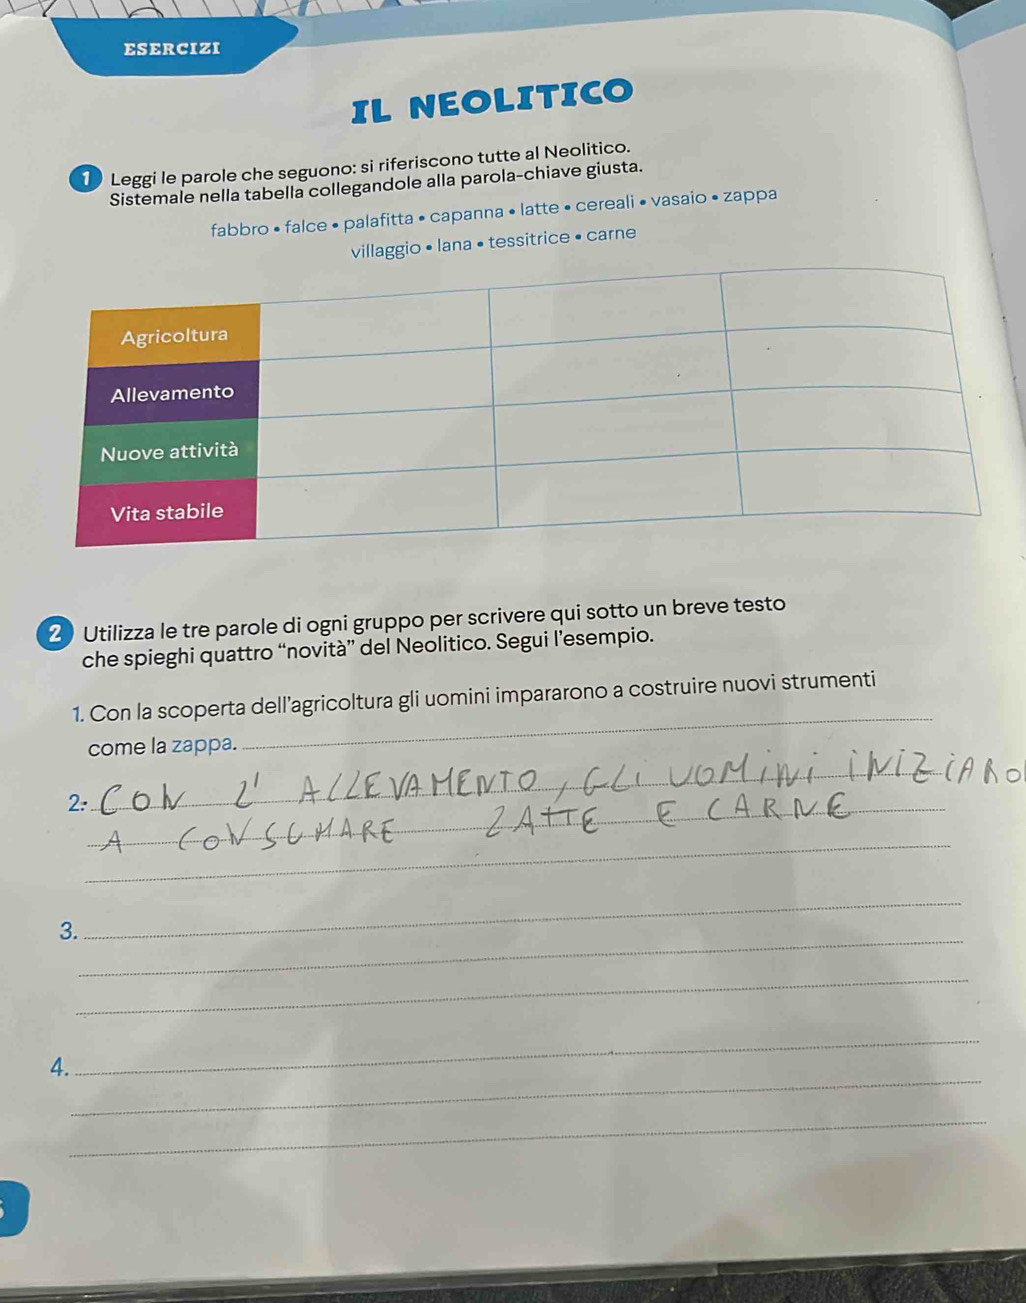 ESERCIZI
IL NEOLITICO
1 Leggi le parole che seguono: si riferiscono tutte al Neolitico.
Sistemale nella tabella collegandole alla parola-chiave giusta.
fabbro • falce • palafitta • capanna • latte • cereali • vasaio • zappa
villaggio • lana • tessitrice • carne
Agricoltura
Allevamento
Nuove attività
Vita stabile
2 Utilizza le tre parole di ogni gruppo per scrivere qui sotto un breve testo
che spieghi quattro “novità” del Neolitico. Segui l’esempio.
1. Con la scoperta dell’agricoltura gli uomini impararono a costruire nuovi strumenti
come la zappa.
2. CON L' ALLEVAMENTO, GLI UOMINI INIZIARO
A CONSUMARE LATTE E CARNE
3.
4.